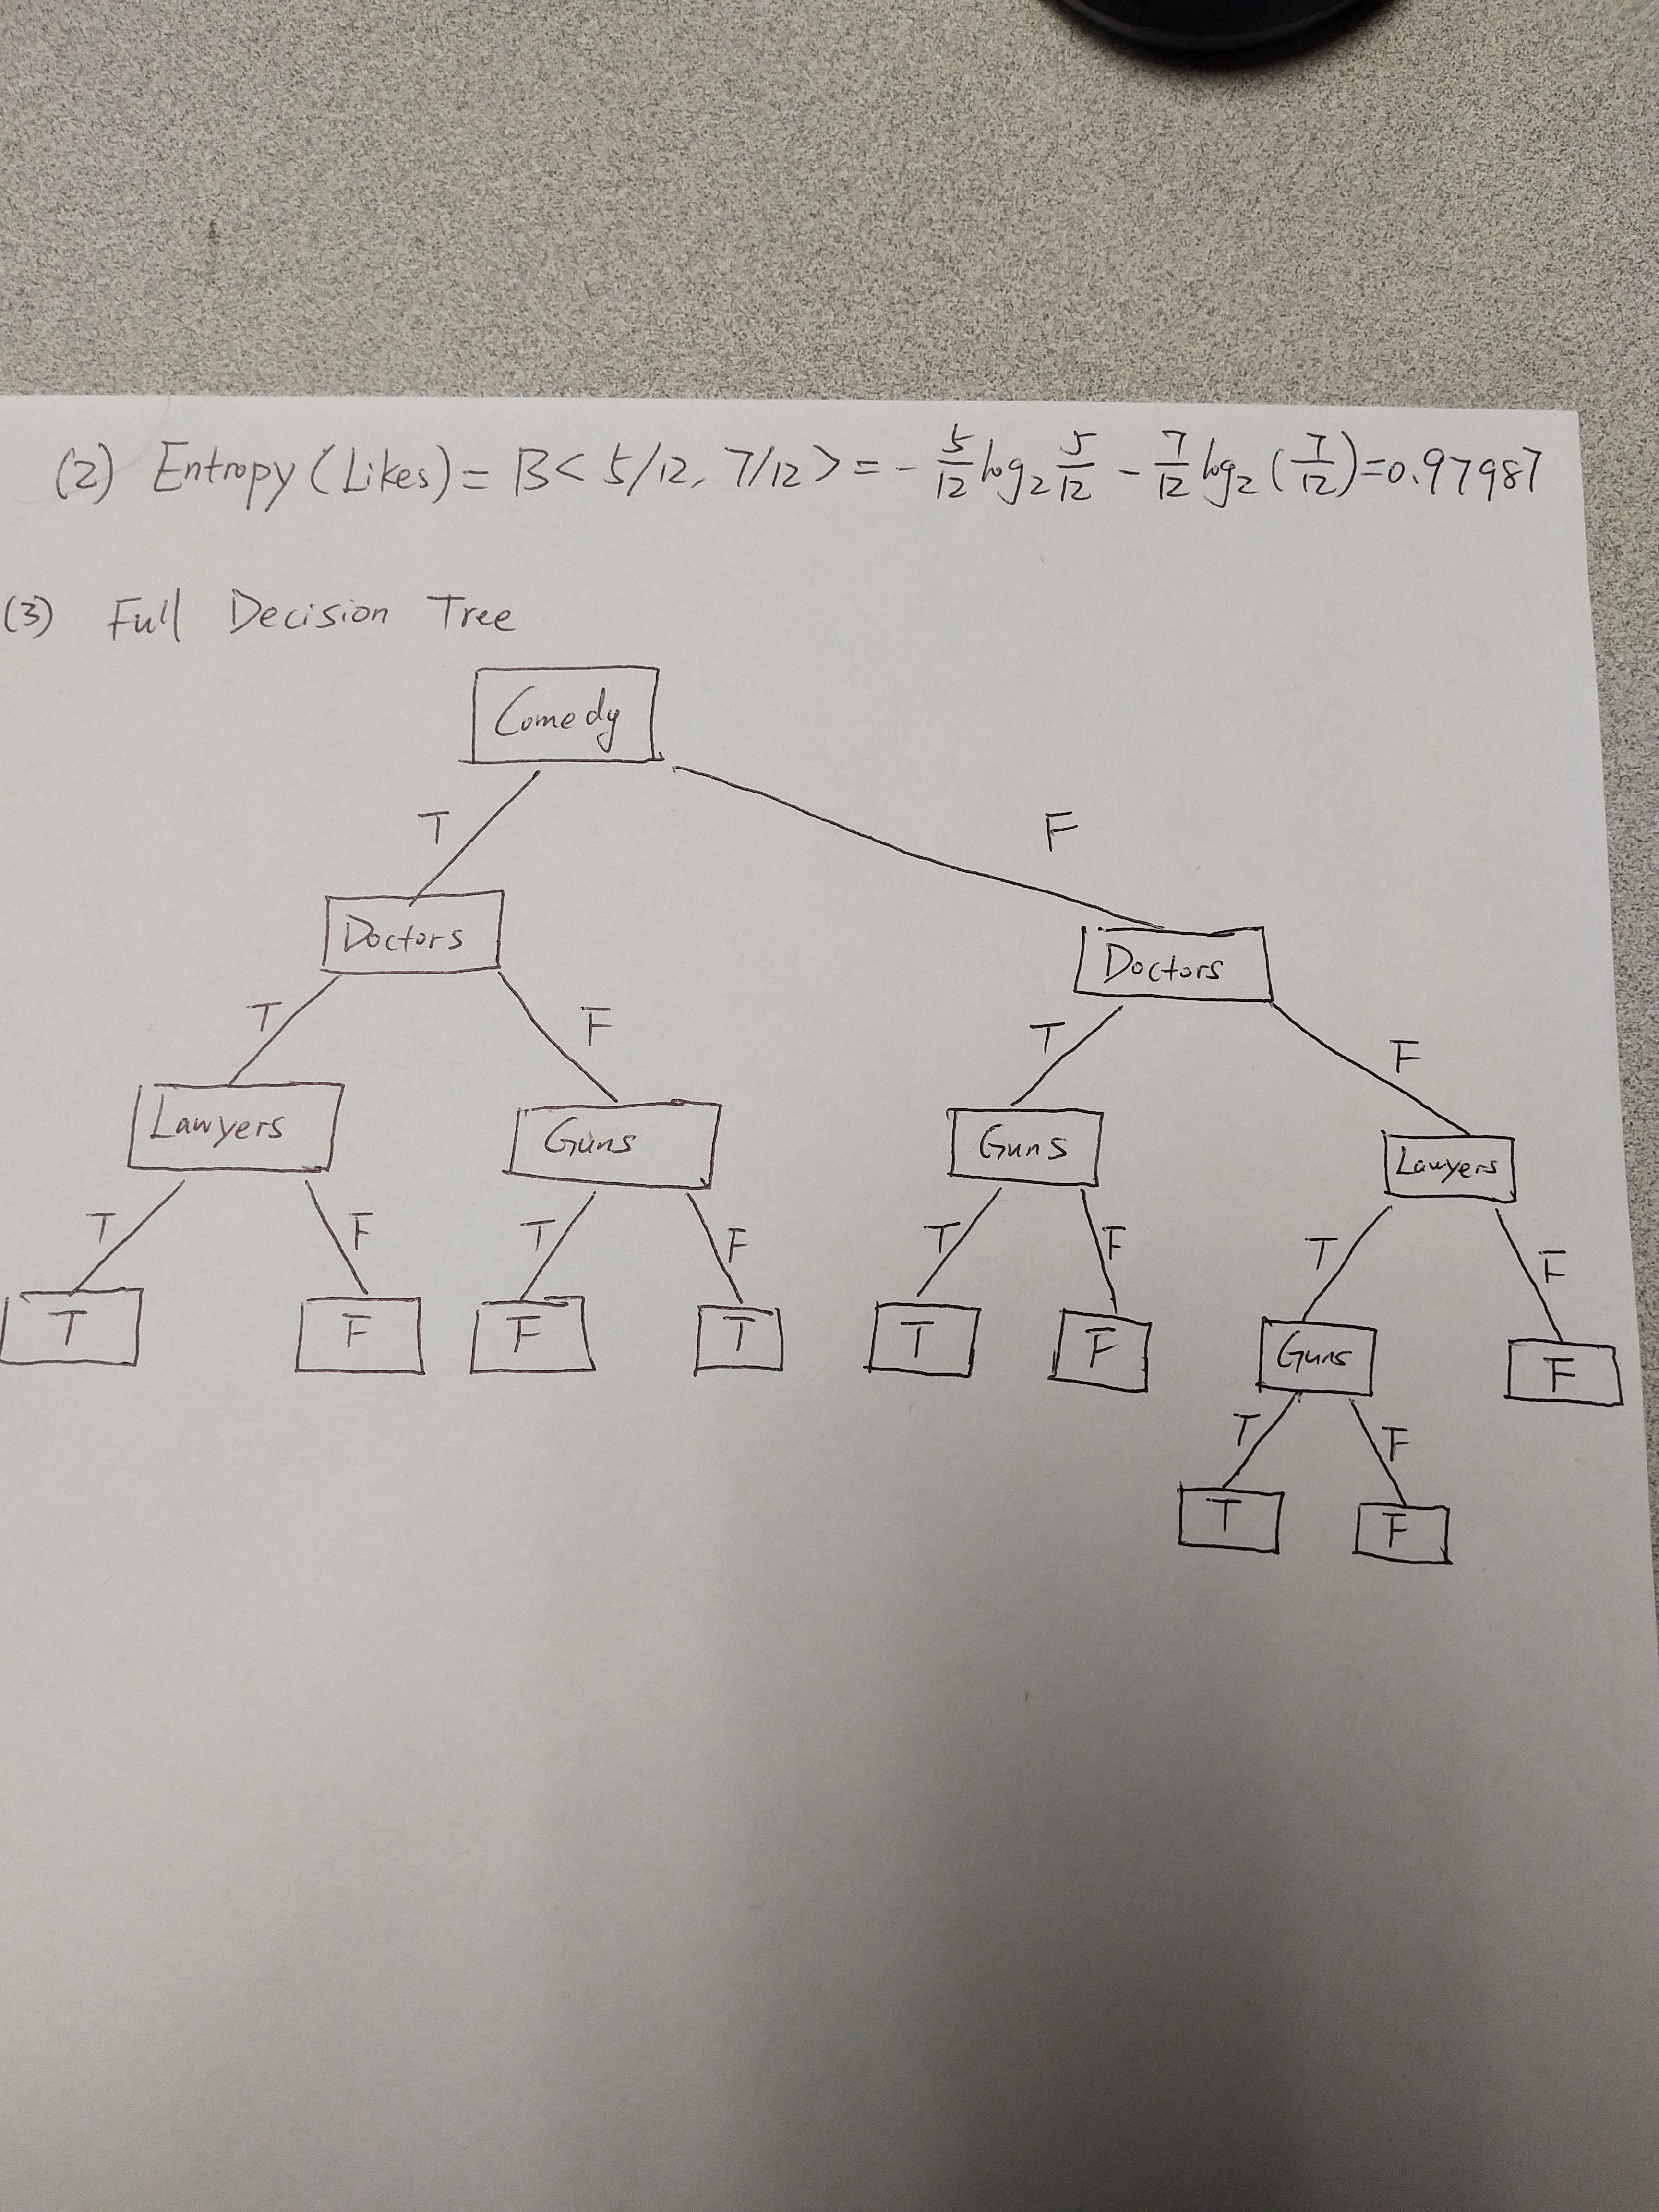 (2) Entropy (Likes) = B< 5/12, 7/12 > = - 5/12 log2 5/12 - 7/12 log2 (7/12) = 0.97987
(3) Full Decision Tree
Comedy
T F
Doctors Doctors
T F T F
Lawyers Guns Guns Lawyers
T F T F T F T F
T F F T T F Guns F
T F
T F